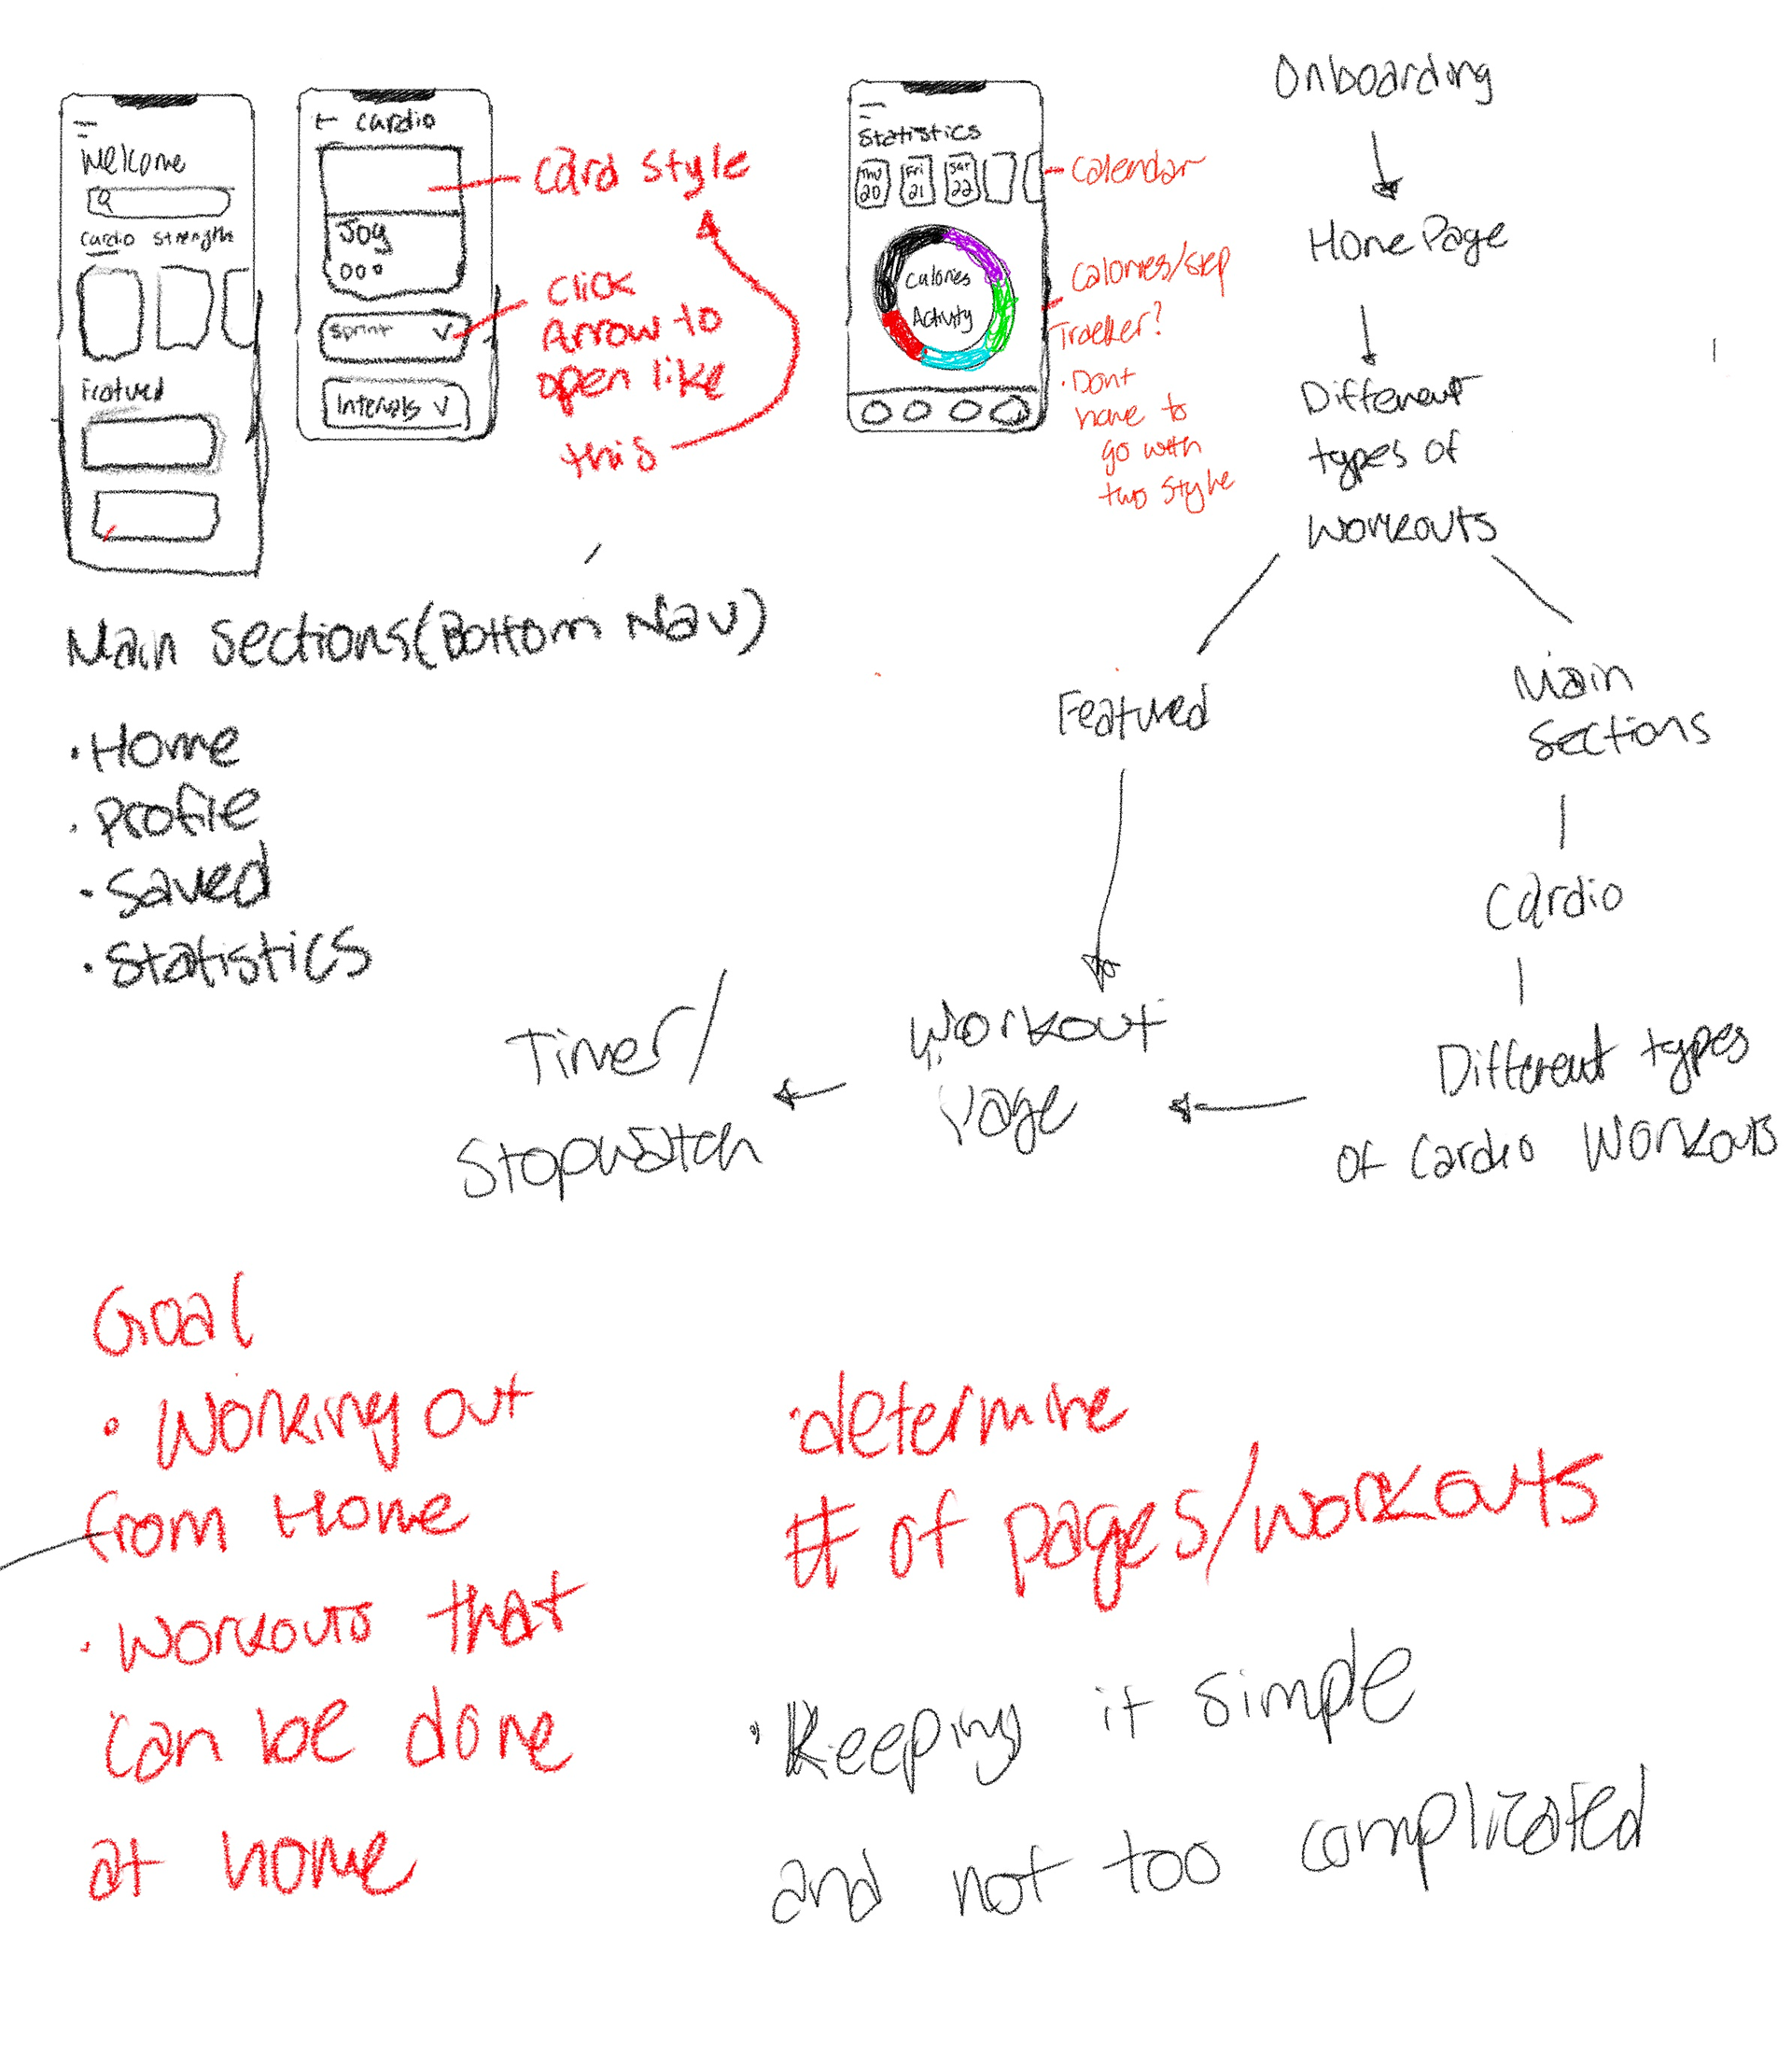 Welcome
Cardio Strength
Featured
← Cardio
Jog
ooo
Sprint
Intervals
Card Style
Click
Arrow to
open like
this
Statistics
Thu 20
Fri 21
Sat 22
Calories
Activity
Calendar
Calories/Step
Tracker?
• Dont
have to
go with
two style
Onboarding
Home Page
Different
types of
Workouts
Featured
Main
Sections
Cardio
Different types
of Cardio Workouts
Workout
Page
Timer/
Stopwatch
Main Sections (Bottom Nav)
• Home
• Profile
• Saved
• Statistics
Goal
• Working out
from Home
• Workouts that
can be done
at home
• determine
# of pages/workouts
• Keeping it simple
and not too complicated